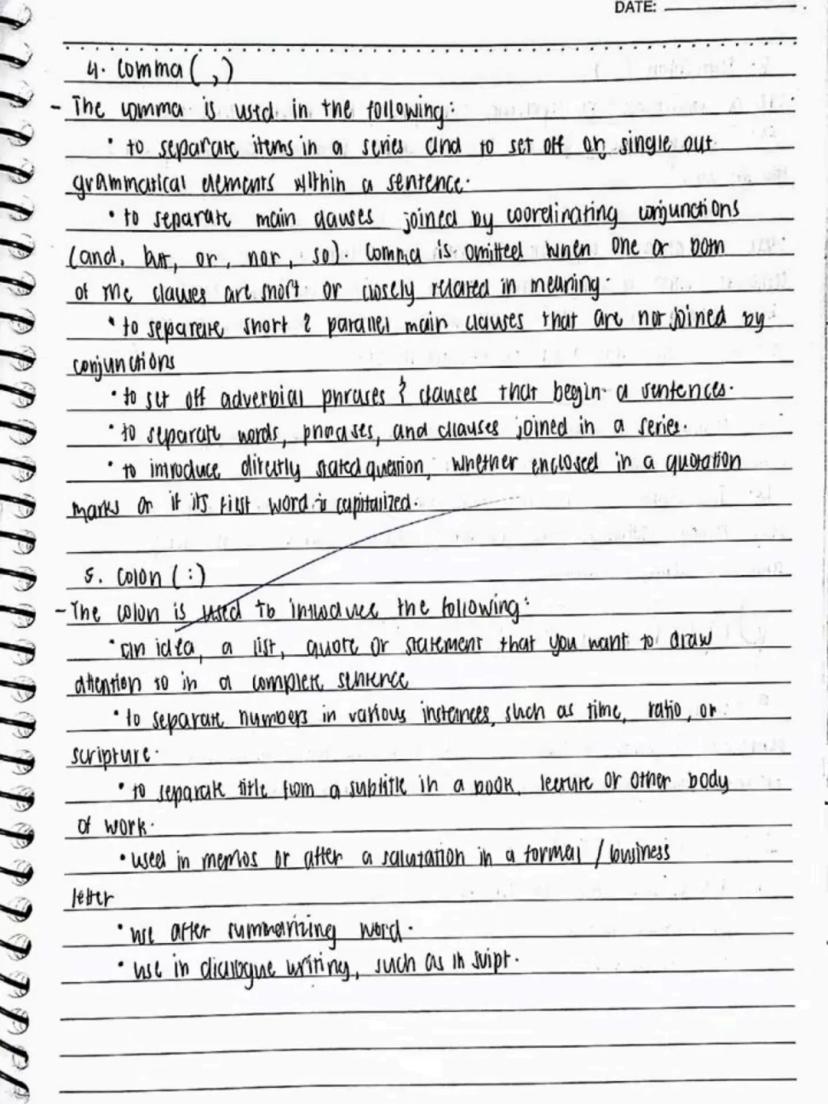 DATE:
4. Comma ( , )
- The comma is used in the following:
• to separate items in a series and to set off or single out
grammatical elements within a sentence.
• to separate main clauses joined by coordinating conjunctions
(and, but, or, nor, so). Comma is omitted when one or both
of the clauses are short or closely related in meaning.
• to separate short & parallel main clauses that are not joined by
conjunctions
• to set off adverbial phrases & clauses that begin a sentences.
• to separate words, phrases, and clauses joined in a series.
• to introduce directly stated question, whether enclosed in a quotation
marks or if its first word is capitalized.
5. Colon ( : )
- The colon is used to introduce the following:
• an idea, a list, quote or statement that you want to draw
attention to in a complete sentence
• to separate numbers in various instances, such as time, ratio, or
scripture.
• to separate title from a subtitle in a book, lecture or other body
of work.
• used in memos or after a salutation in a formal / business
letter
• use after summarizing word.
• use in dialogue writing, such as in script.